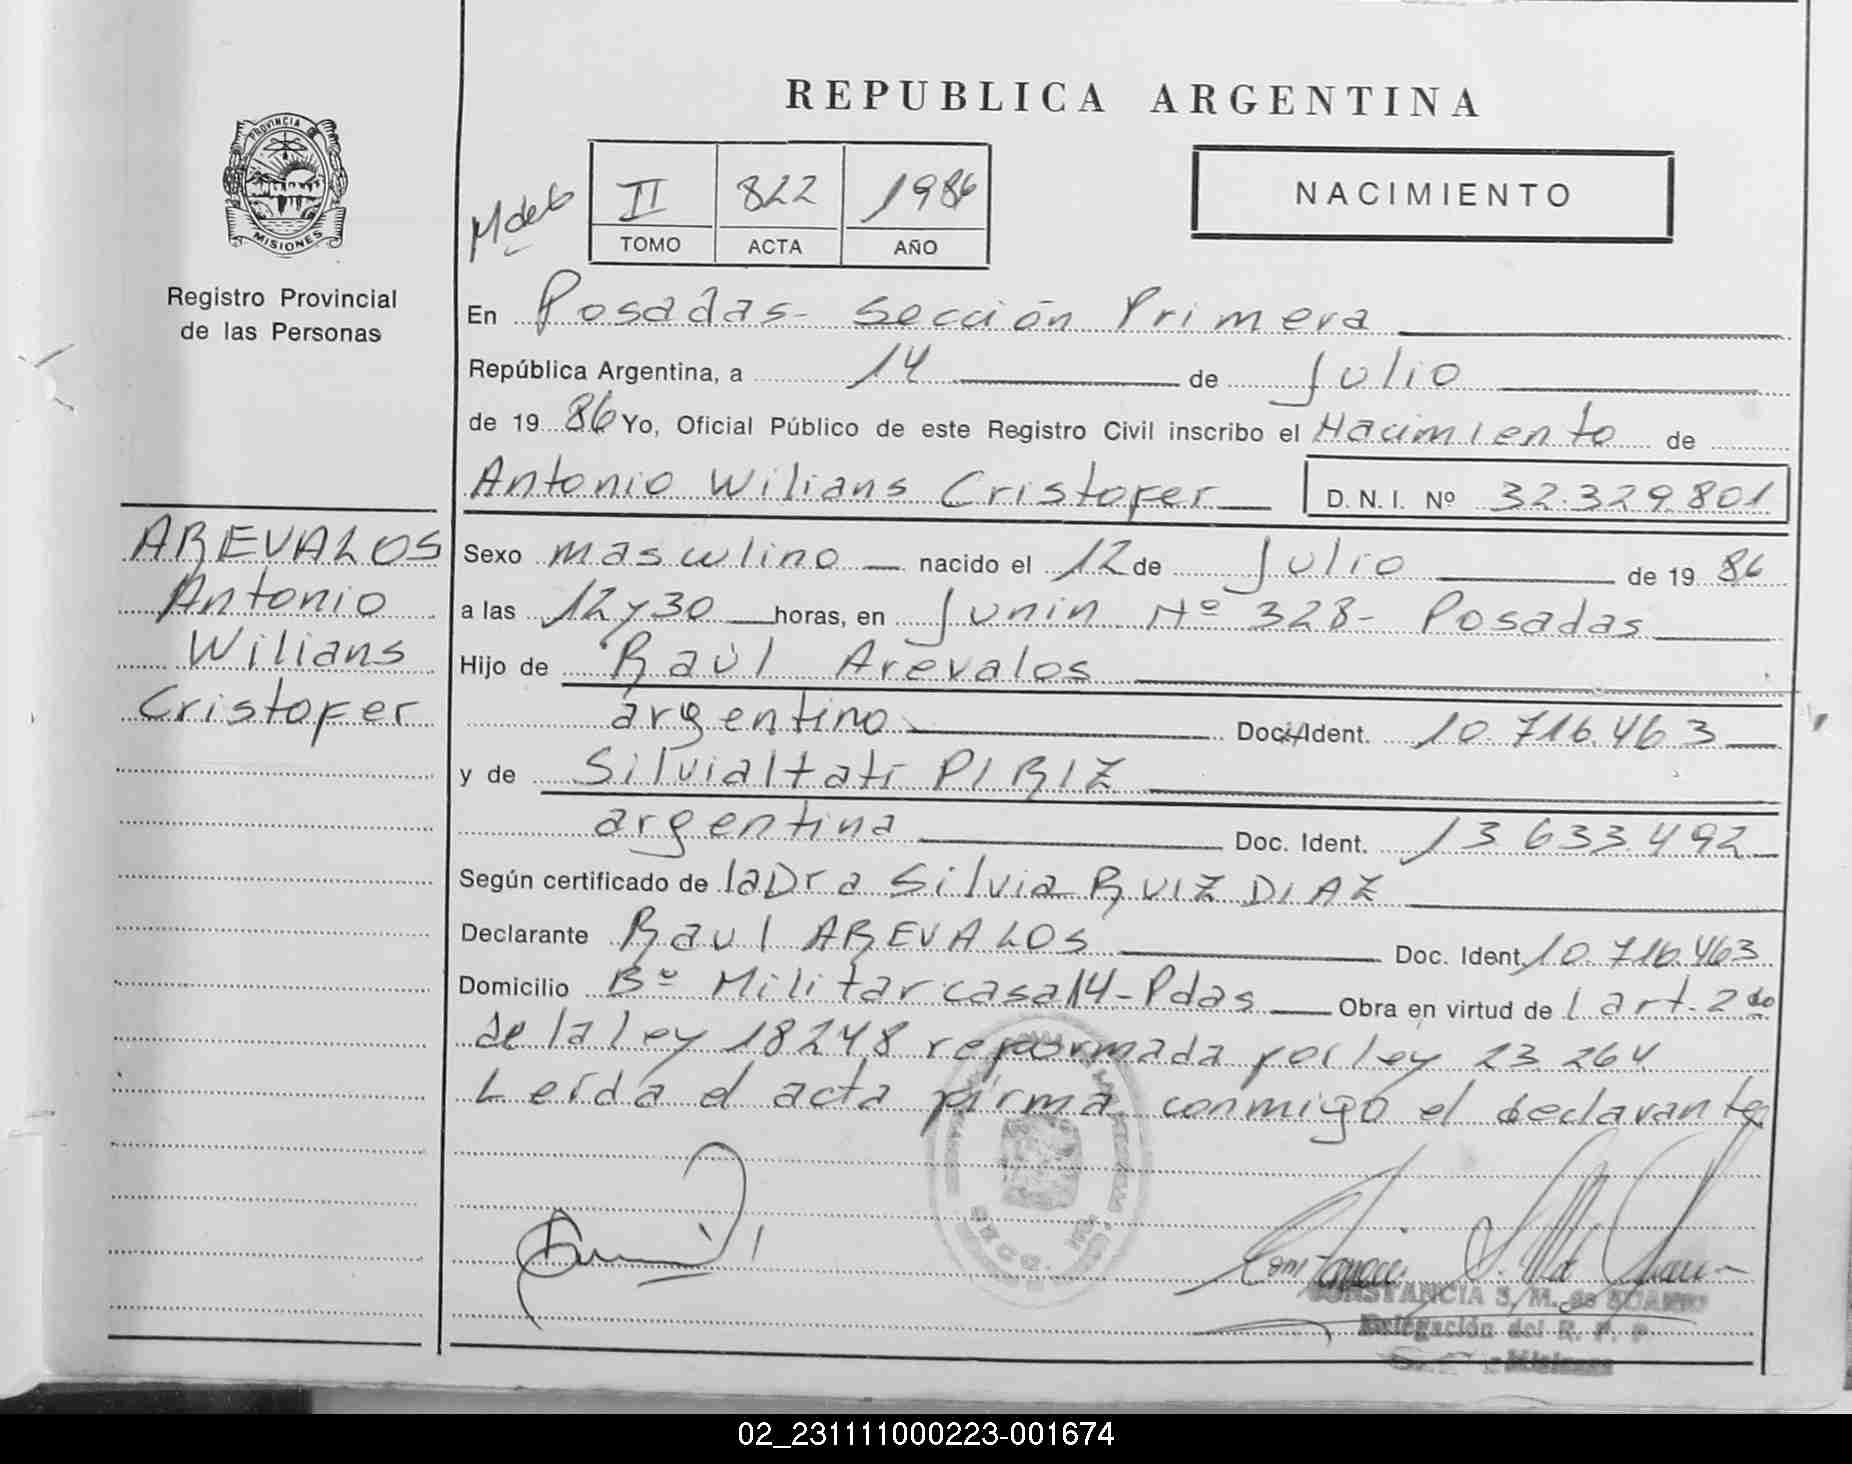 REPUBLICA ARGENTINA
PROVINCIA DE
MISIONES
Registro Provincial
de las Personas
II 822 1986
TOMO ACTA AÑO
NACIMIENTO
En Posadas- Sección Primera
República Argentina, a 14 de Julio
de 19 86 Yo, Oficial Público de este Registro Civil inscribo el Nacimiento de
Antonio Wilians Cristofer D. N. I. Nº 32.329.801
AREVALOS
Antonio
Wilians
Cristofer
Sexo masculino nacido el 12 de Julio de 19 86
a las 12 y 30 horas, en Junin Nº 328- Posadas
Hijo de Raúl Arevalos
argentino Doc. Ident. 10.716.463
y de Silvia Itatí PIRIZ
argentina Doc. Ident. 13.633.492
Según certificado de la Dra Silvia RUIZ DIAZ
Declarante Raul AREVALOS Doc. Ident. 10.716.463
Domicilio Bº Militar casa 14-Pdas Obra en virtud de l art. 2do
de la ley 18248 reformada por ley 23.264
Leída el acta firma conmigo el declarante
CONSTANCIA S. M. de
Delegación del R. P. P
Misiones
02_231111000223-001674